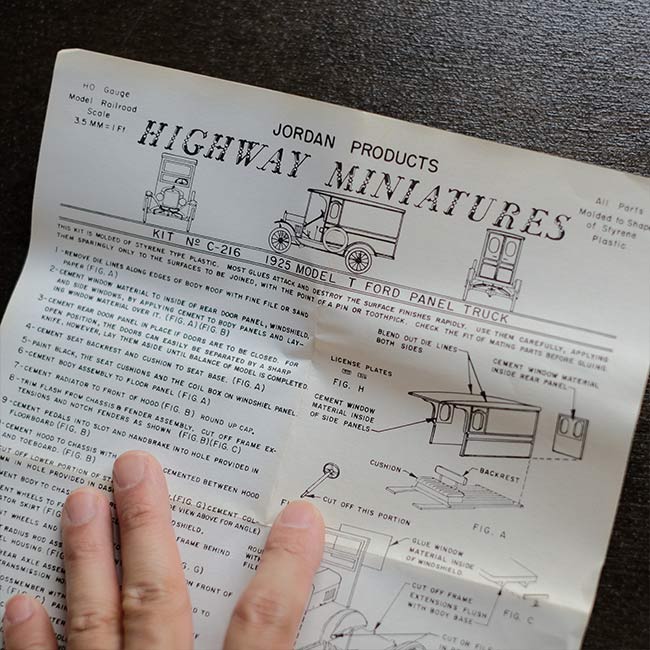 HO Gauge
Model Railroad
Scale
3.5 MM = 1 Ft
JORDAN PRODUCTS
HIGHWAY MINIATURES
All Parts
Molded to Shape
of Styrene
Plastic
KIT Nº C-216 1925 MODEL T FORD PANEL TRUCK
THIS KIT IS MOLDED OF STYRENE TYPE PLASTIC. MOST GLUES ATTACK AND DESTROY THE SURFACE FINISHES RAPIDLY. USE THEM CAREFULLY, APPLYING
THEM SPARINGLY ONLY TO THE SURFACES TO BE JOINED, WITH THE POINT OF A PIN OR TOOTHPICK. CHECK THE FIT OF MATING PARTS BEFORE GLUING.
1-REMOVE DIE LINES ALONG EDGES OF BODY ROOF WITH FINE FILE OR SAND
PAPER (FIG. A)
2-CEMENT WINDOW MATERIAL TO INSIDE OF REAR DOOR PANEL, WINDSHIELD,
AND SIDE WINDOWS, BY APPLYING CEMENT TO BODY PANELS AND LAY-
ING WINDOW MATERIAL OVER IT. (FIG. A)(FIG. B)
3-CEMENT REAR DOOR PANEL IN PLACE IF DOORS ARE TO BE CLOSED. FOR
OPEN POSITION, THE DOORS CAN EASILY BE SEPARATED BY A SHARP
KNIFE, HOWEVER, LAY THEM ASIDE UNTIL BALANCE OF MODEL IS COMPLETED
4-CEMENT SEAT BACKREST AND CUSHION TO SEAT BASE. (FIG. A)
5-PAINT BLACK, THE SEAT CUSHIONS AND THE COIL BOX ON WINDSHIEL PANEL
6-CEMENT BODY ASSEMBLY TO FLOOR PANEL (FIG. A)
7-CEMENT RADIATOR TO FRONT OF HOOD (FIG. B) ROUND UP CAP.
8-TRIM FLASH FROM CHASSIS & FENDER ASSEMBLY. CUT OFF FRAME EX-
TENSIONS AND NOTCH FENDERS AS SHOWN (FIG. B)(FIG. C)
9-CEMENT PEDALS INTO SLOT AND HANDBRAKE INTO HOLE PROVIDED IN
FLOORBOARD (FIG. B)
CEMENT HOOD TO CHASSIS WITH
CEMENTED BETWEEN HOOD
AND TOEBOARD. (FIG. B)
CUT OFF LOWER PORTION OF
(FIG. G) CEMENT COL
OWN IN HOLE PROVIDED IN DAS
VIEW ABOVE FOR ANGLE)
MENT BODY TO CHAS
DSHIELD,
MENT WHEELS TO
FRAME BEHIND
STOR SKIRT (FIG
WHEELS AND
FIG. G)
RADIUS ROD AS
ON FRONT OF
EL HOUSING (FIG
REAR AXLE ASSEMB
TRANSMISSION HO
OSSMEMBER WITH
TO
BLEND OUT DIE LINES
BOTH SIDES
LICENSE PLATES
FIG. H
CEMENT WINDOW MATERIAL
INSIDE REAR PANEL
CEMENT WINDOW
MATERIAL INSIDE
OF SIDE PANELS
CUSHION
BACKREST
FIG. A
CUT OFF THIS PORTION
GLUE WINDOW
MATERIAL INSIDE
OF WINDSHIELD
FIG. C
CUT OFF FRAME
EXTENSIONS FLUSH
WITH BODY BASE
CUT OR FILE